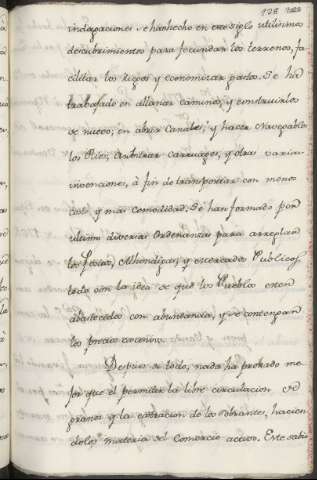 indagaciones se han hecho en este siglo utilisimos
descubrimientos para fecundar los terrenos, fa
cilitar los riegos y economizar gastos. Se ha
trabajado en allanar caminos, y construirlos
de nuevo, en abrir Canales, y hacer Navegables
los Rios, Arbitrar carruages, y otras varias
invenciones, à fin de transportar con menos
costo y mas comodidad. Se han formado por
ultimo diversas Ordenanzas para arreglar
los Positos, Alhondigas, y mercados Publicos
todo con la idea de que los Pueblos esten
abastecidos con abundancia, y se contengan
los precios
Despues de todo, nada ha probado me
jor que el permitir la libre circulacion de
granos y la extraccion de los sobrantes, hacien
dolos materia del Comercio activo. Este sabio